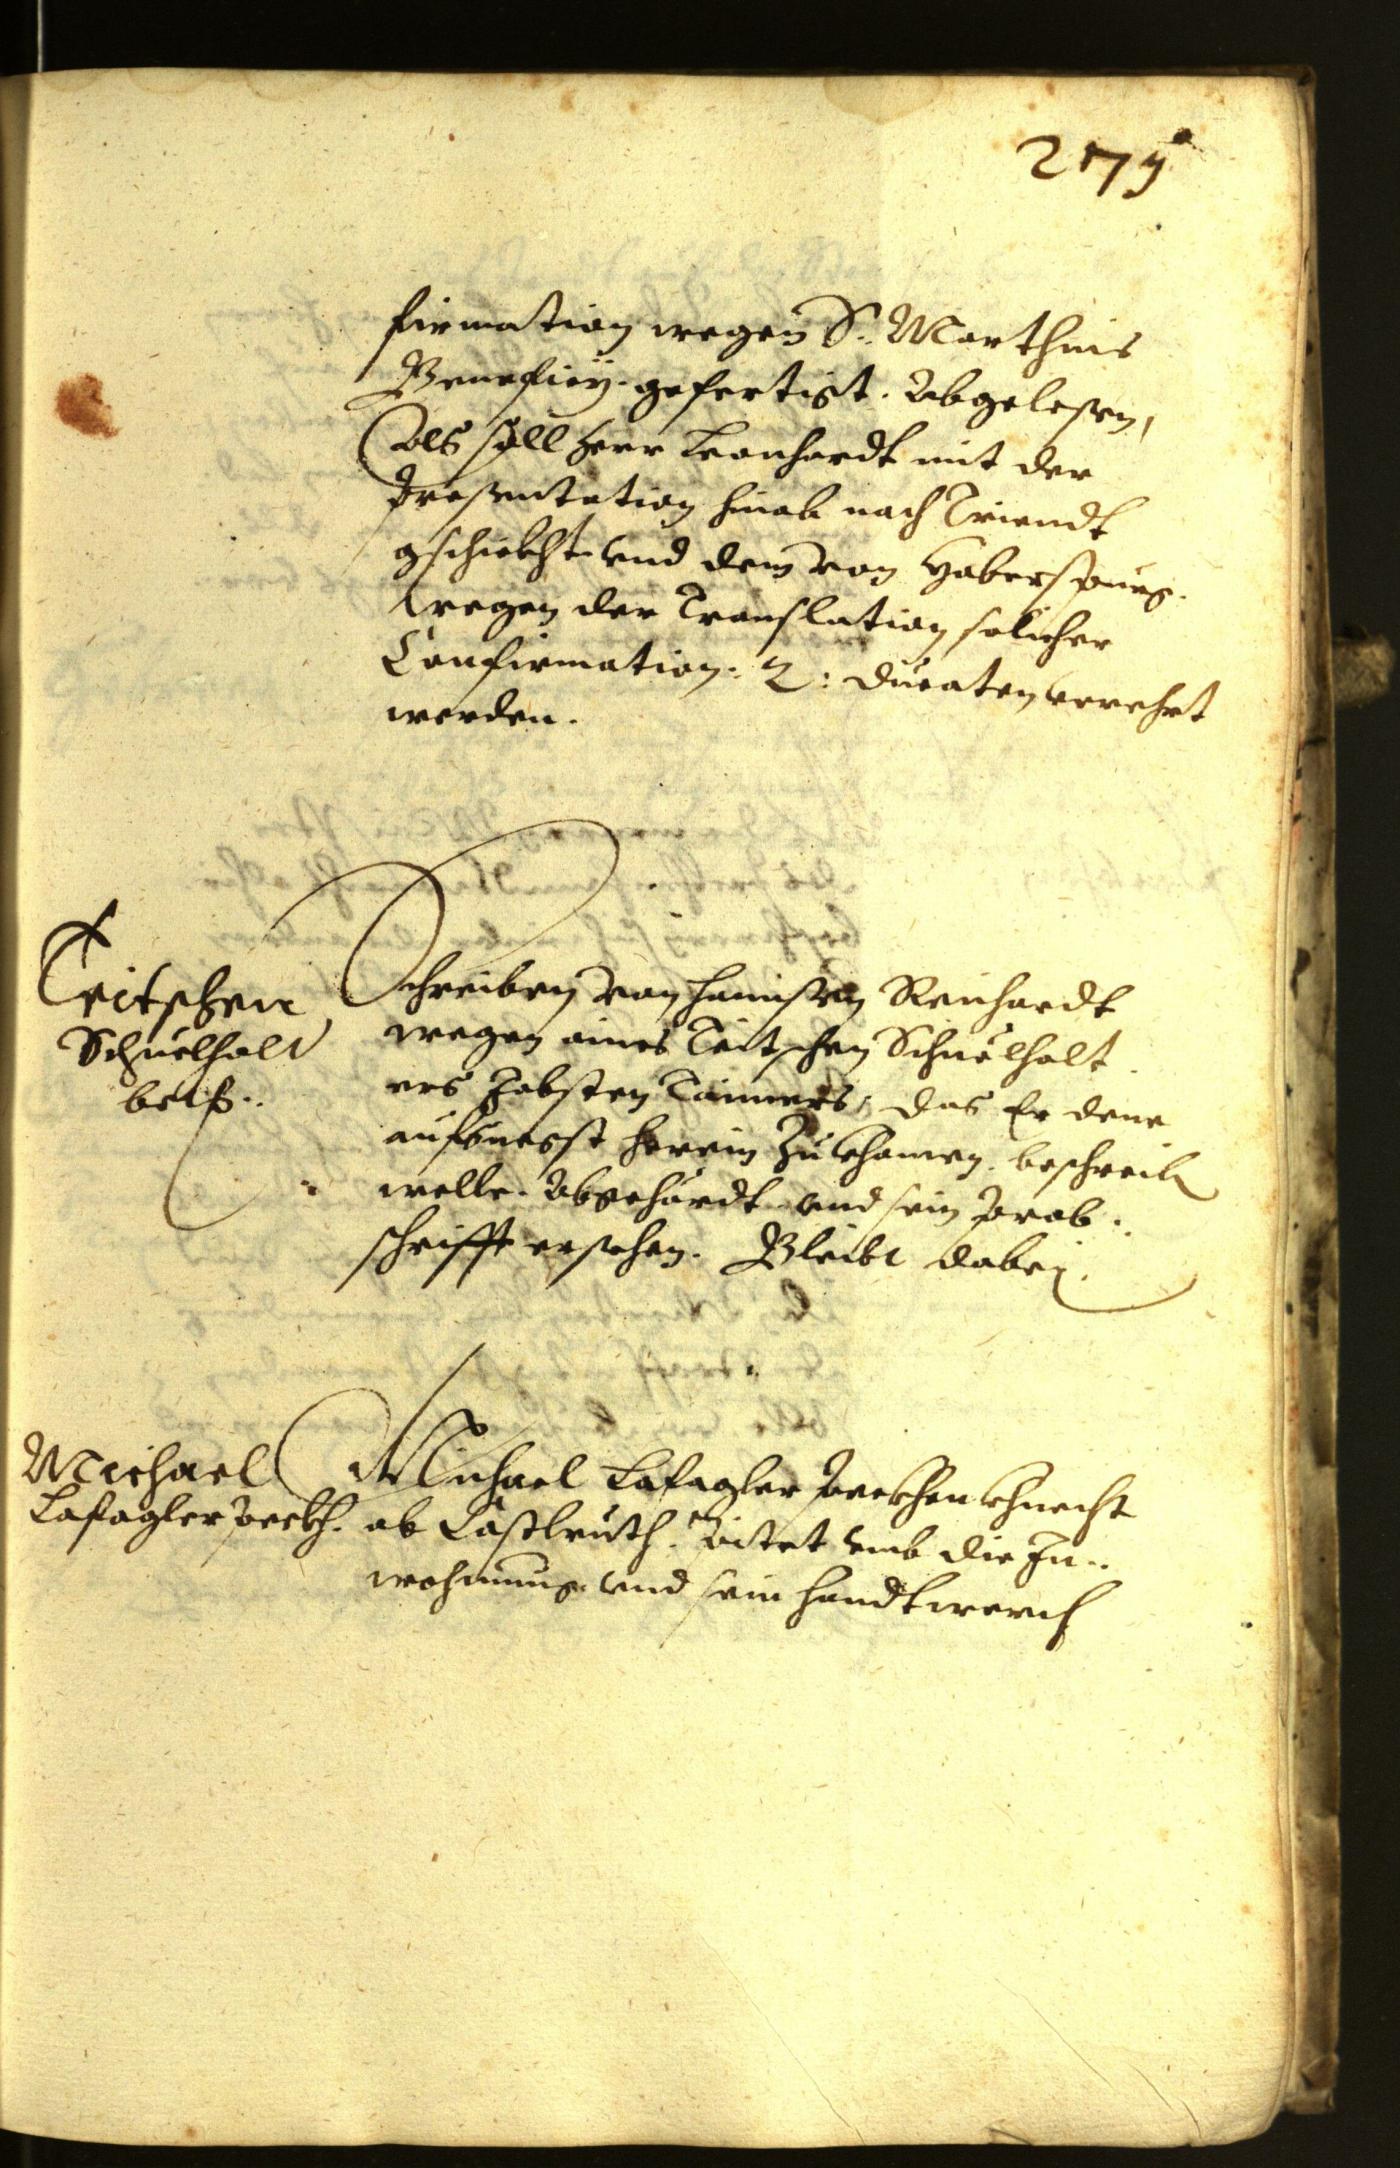 275
firmation wegen S: Marthins
Beneficij. gefertigt. Abgelesen,
Als soll Herr Leonhardt mit der
Presentation hinab nach Triendt
gschickht und dem von Haberspurg.
wegen der Translation solicher
Confirmation: 2: Ducaten verehrt
werden.
Teitschen
Schuelhalt
betß..
Schreiben von Hannsen Reichardt
wegen aines Teitschen Schuelhalt
ers Jobsten Tanners, das Er dene
aufs herein zu khomen. beschreib
welle. Abgehördt und sein Prob.
schrifft ersehen. Bleibt dabei.
Michael
Lafagler Peckh.
Michael Lafagler Peckhen khnecht
ab Castlruth. Pitet umb die In..
wohnung. und sein handtwerch